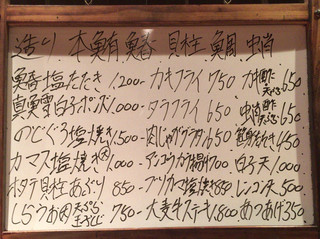 造り 本鮪 貝柱 鯛 蛸
塩たたき 1,200- カキフライ 750 カキ酢 天ぷら 650
白子ポン酢 1,000- タラフライ 650 蛸酢 天ぷら 650
のどぐろ塩焼き 1,500- 肉じゃがグラタン 650
カマス塩焼き 1,000- アンコウ から揚 700 白子天 1,000
ホタテ貝柱あぶり 850- ブリカマ塩焼き 850 レンコン天 500
しらうお 天ぷら 玉子とじ 750- 大麦牛ステーキ 1,800 あつあげ 350